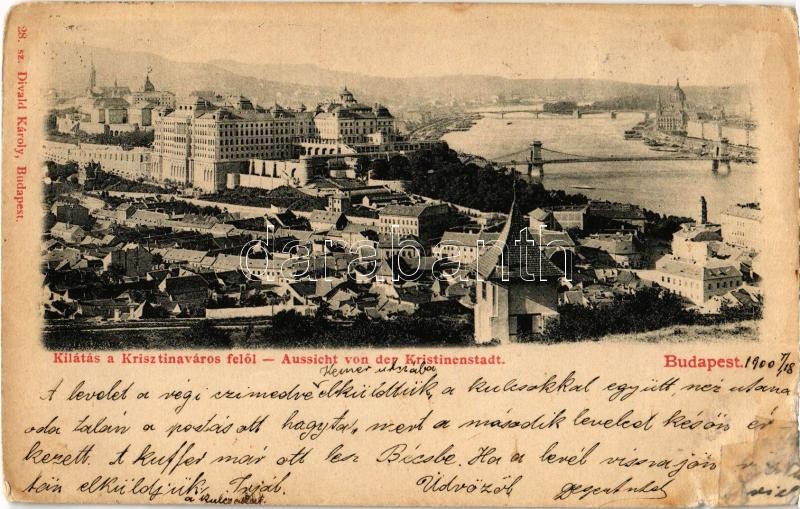 28. sz. Divald Károly, Budapest.
darabanth
Kilátás a Krisztinaváros felől — Aussicht von der Kristinenstadt.
Budapest. 1900 7/18
A levelet a végi czimedre elküldtük, a kulcsokkal együtt, nez utana
oda talán a postás ott hagyta, mert a második leveled későn ér
kezett. A kuffer már ott lesz Bécsbe. Ha a levél visszajön
tán elküldjük Irjál. Üdvözöl
a kulcsokat.